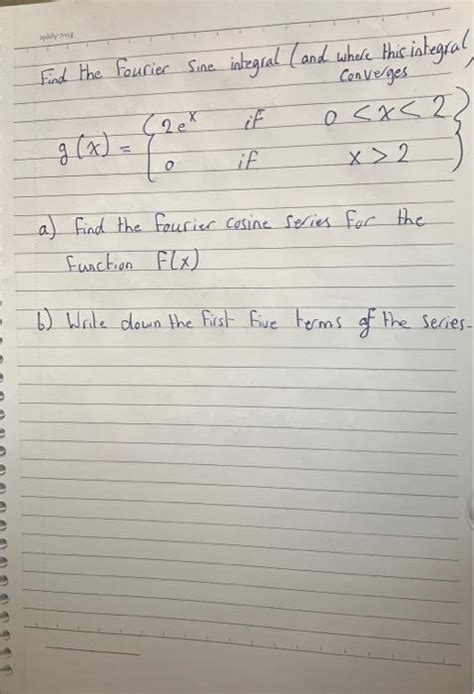 Find the Fourier Sine integral (and where this integral
Converges
g(x) = { 2e^x if 0 < x < 2
0 if x > 2 }
a) Find the Fourier cosine series For the
Function F(x)
b) Write down the First Five terms of the series.